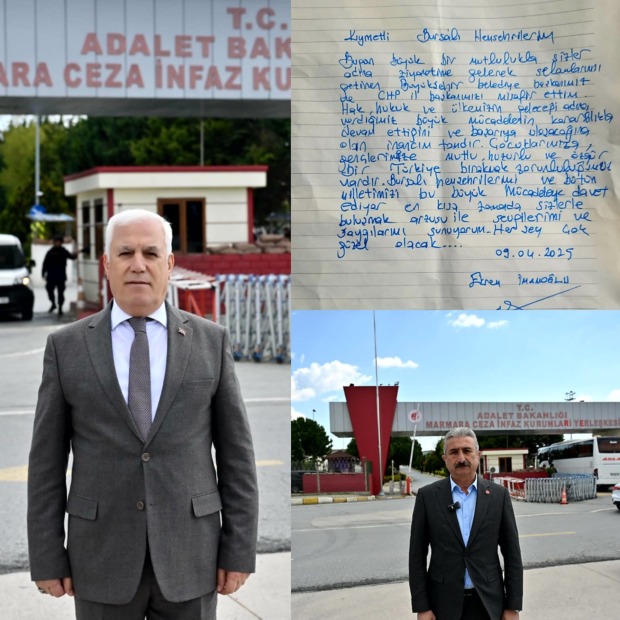 T.C.
ADALET BAKA
MARMARA CEZA İNFAZ KURU
Kıymetli Bursalı Hemşehrilerim
Bugün büyük bir mutlulukla sizler
adına ziyaretime gelerek selamlarınızı
getiren Büyükşehir belediye başkanımız
ile CHP il başkanımızı misafir ettim.
Hak, hukuk ve ülkemizin geleceği adına
verdiğimiz büyük mücadelenin kararlılıkla
devam ettiğini ve başarıya ulaşacağına
olan inancım tamdır. Çocuklarımıza,
gençlerimize mutlu, huzurlu ve özgür
bir Türkiye bırakmak zorunluluğumuz
vardır. Bursalı hemşehrilerimi ve bütün
milletimizi bu büyük Mücadeleye davet
ediyor en kısa zamanda sizlerle
buluşmak arzusu ile sevgilerimi ve
saygılarımı sunuyorum. Her şey çok
güzel olacak....
09.04.2025
Ekrem İMAMOĞLU
T.C.
ADALET BAKANLIĞI
MARMARA CEZA İNFAZ KURUMLARI YERLEŞKESİ